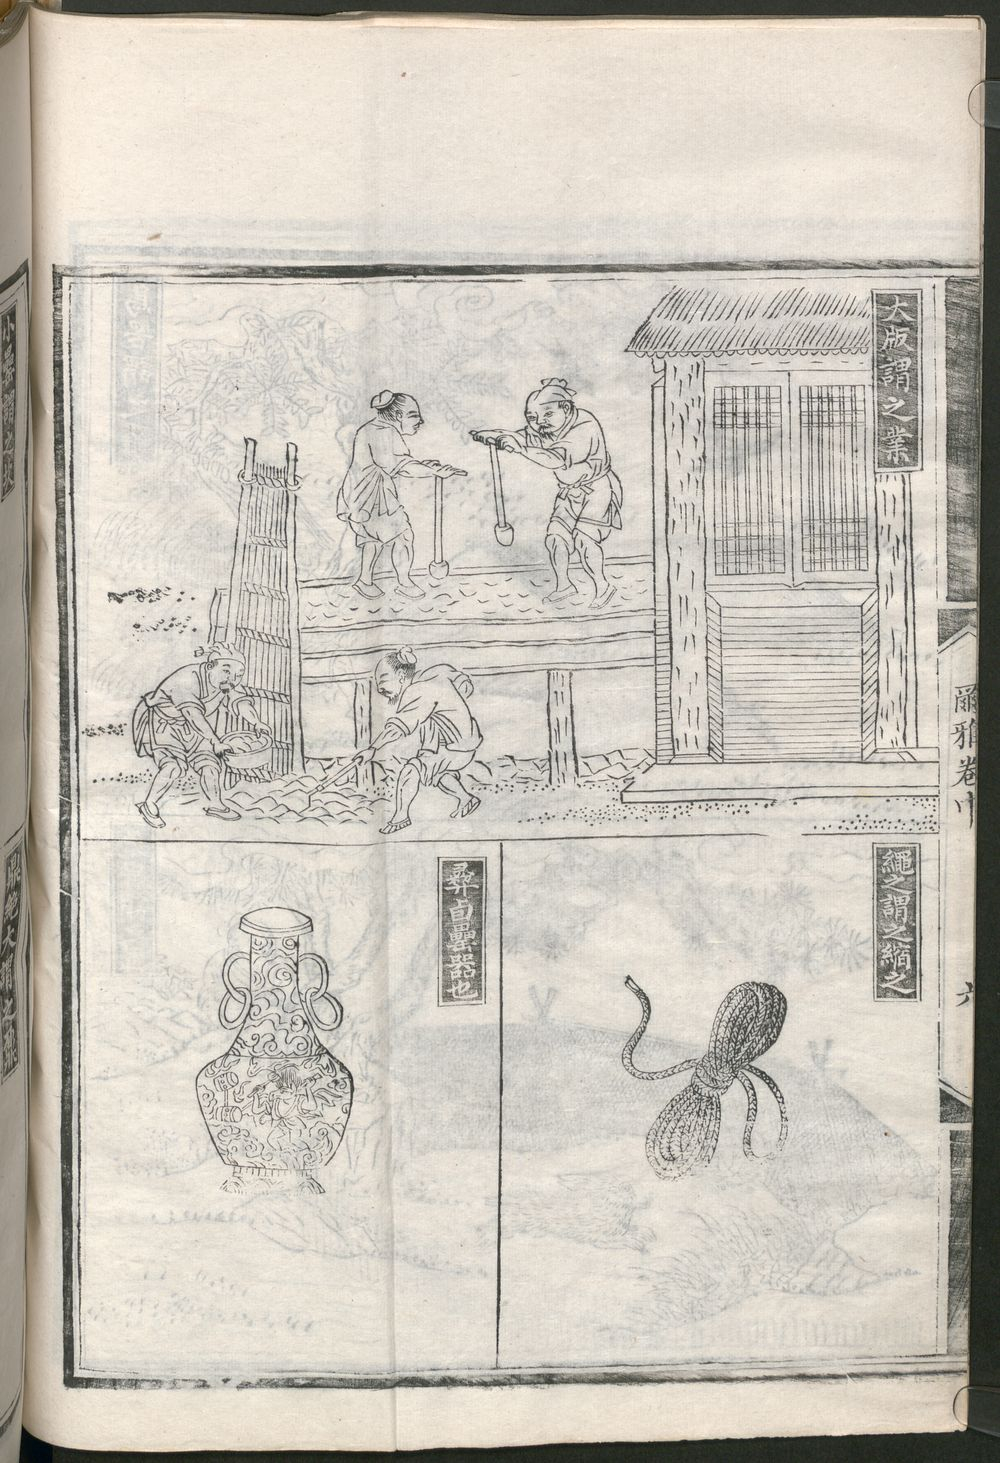 大版謂之業
繩之謂之縮之
彝卣罍器也
爾雅卷中
六